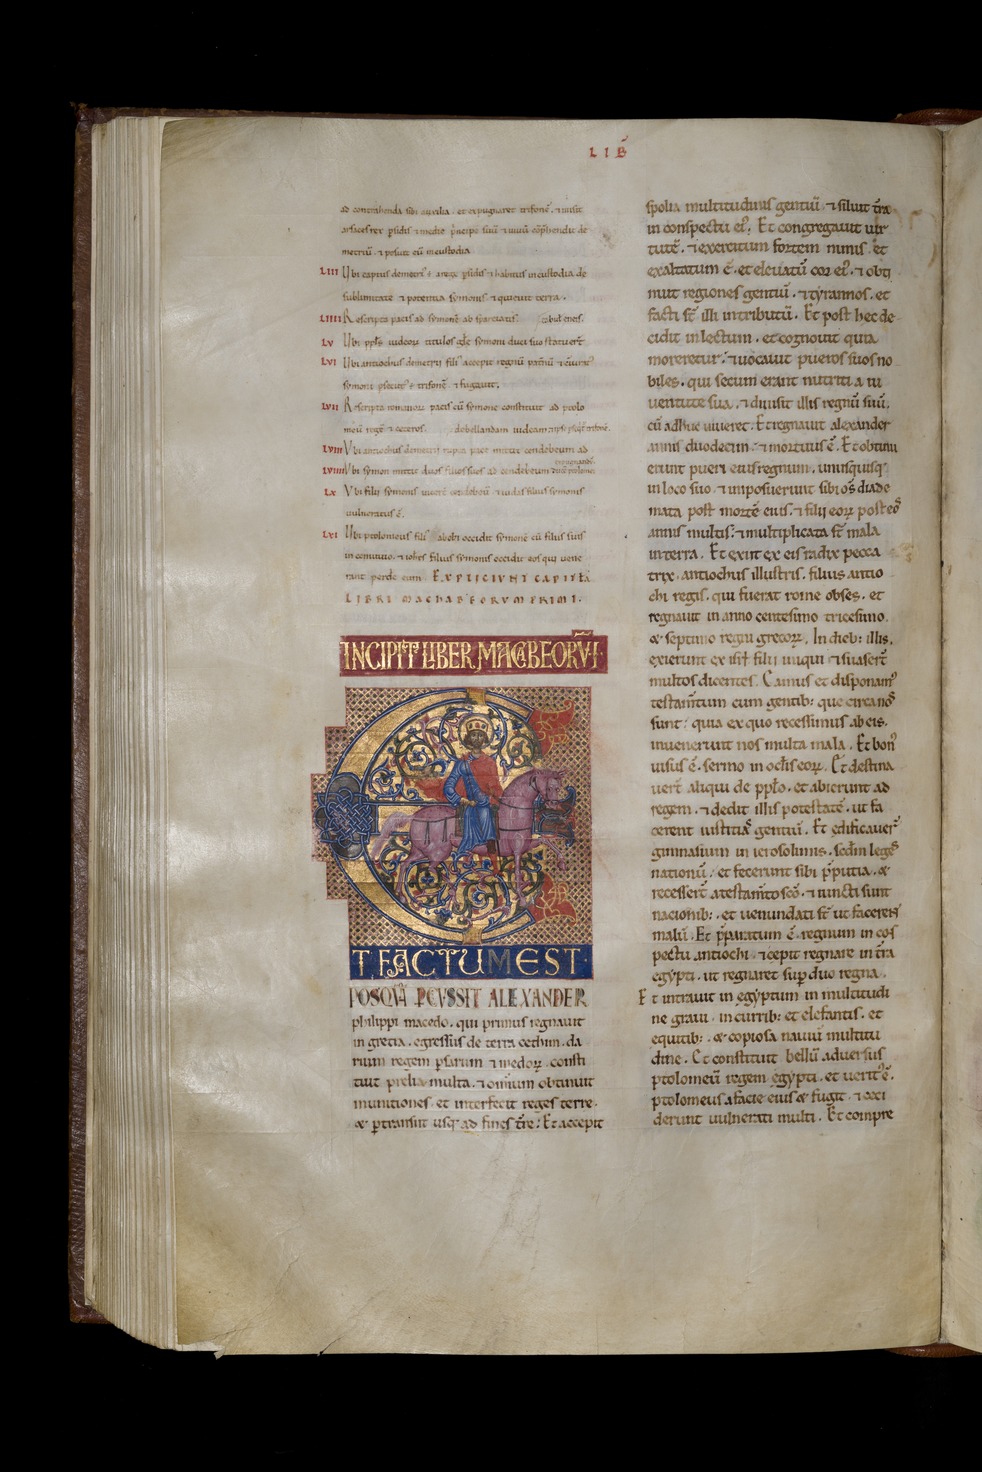 LIB̄
ad contrahenda sibi auxilia · et expugnaret trifonē · ⁊ misit
arsaces rex psidis ⁊ medie p̄ncipē suū ⁊ uiuū cōp̄hendit de
metriū · ⁊ posuit eū in custodia
LIII Ubi captus demetri᾿ ē arege psidis ⁊ habitus in custodia de
sublimitate ⁊ potentia symonis ⁊ quieuit terra ·
LIIII Rescripta pacis ad symonē ab sparciatis.
LV Ubi ppl̄s iudeorꝝ titulos symoni duci suo statuerт̄
LVI Ubi antiochus demetrii fili᾿ accepit regnū patriū ⁊
symoni trifonē ⁊ fugauit.
LVII Rescripta romanorꝝ pacis cū symone constituit ad ptolo
meū regē ⁊ ceteros. debellandam iudeam
LVIII Vbi antiochus demetrii rupta pace mittit cendebeum ad
LVIIII Vbi symon mittit duos filios suos ad cendebeum
LX Vbi filii symonis uicerт̄ cendebeū ⁊ iudas filius symonis
uulneratus ē.
LXI Ubi ptolomeus fili᾿ abobi occidit symonē cū filiis suis
in conuiuio, ⁊ iohēs filius symonis occidit eos qui uene
rant perdere eum EXPLICIUNT CAPITLA
LIBRI MACHABEORVM PRIMI ·
INCIPIT LIBER MACABEORV̄ I ·
ET FACTUM EST
POSQVĀ PCVSSIT ALEXANDER
philippi macedo, qui primus regnauit
in grecia · egressus de terra cethim · da
rium regem psarum ⁊ medorꝝ · consti
tuit prelia multa, ⁊ omium obtinuit
munitiones · et interfecit reges terre ·
& ptransiit usq᾿ ad fines t̄re : Et accepit
spolia multitudinis gentiū · ⁊ siluit t̄ra
in conspectu ei᾿. Et congregauit uir
tutē · ⁊ exercitum fortem nimis · et
exaltatum ē · et eleuatū cor ei᾿ · ⁊ obti
nuit regiones gentiū · ⁊ tyrannos · et
facti sт̄ illi in tributū. Et post hec de
cidit in lectum, et cognouit quia
moreretur · ⁊ uocauit pueros suos no
biles · qui secum erant nutriti a iu
uentute sua · ⁊ diuisit illis regnū suū,
cū adhuc uiueret : Et regnauit alexander
annis duodecim · ⁊ mortuus ē. Et obtinu
erunt pueri eius regnum, unusquisq᾿
in loco suo · ⁊ imposuerunt sibi oс̄s diade
mata post mortē eius · ⁊ filii eorꝝ post eo᾿
annis multis : ⁊ multiplicata sт̄ mala
in terra. Et exiit ex eis radix pecca
trix · antiochus illustris, filius antio
chi regis, qui fuerat rome obses · et
regnauit in anno centesimo tricesimo,
& septimo regni grecorꝝ. In dieb: illis,
exierunt ex isrl̄ filii iniqui ⁊ suaserт̄
multos dicentes. Eamus et disponam᾿
testam̄tum cum gentib: que circa nos
sunt : quia ex quo recessimus ab eis,
inuenerunt nos multa mala. Et bon᾿
uisus ē · sermo in oсl̄is eorꝝ. Et destina
uerт̄ aliqui de pplo · et abierunt ad
regem · ⁊ dedit illis potestatē · ut fa
cerent iustitiā gentiū. Et edificauer᾿
gimnasium in ierosolimis · sedm lege᾿
nationū : et fecerunt sibi p̄putia · &
recesserт̄ a testam̄to scō · ⁊ iuncti sunt
nacionib: · et uenundati sт̄ ut facerent
malū. Et p̄paratum ē · regnum in cos
pectu antiochi · ⁊ cepit regnare in t̄ra
egypti · ut regnaret sup duo regna,
Et intrauit in egyptum in multitudi
ne graui · in currib: et elefantis · et
equitib: · & copiosa nauiū multitu
dine. Et constituit bellū aduersus
ptolomeū regem egypti · et uerit᾿ ē ·
ptolomeus a facie eius & fugit · ⁊ ceci
derunt uulnerati multi. Et compre